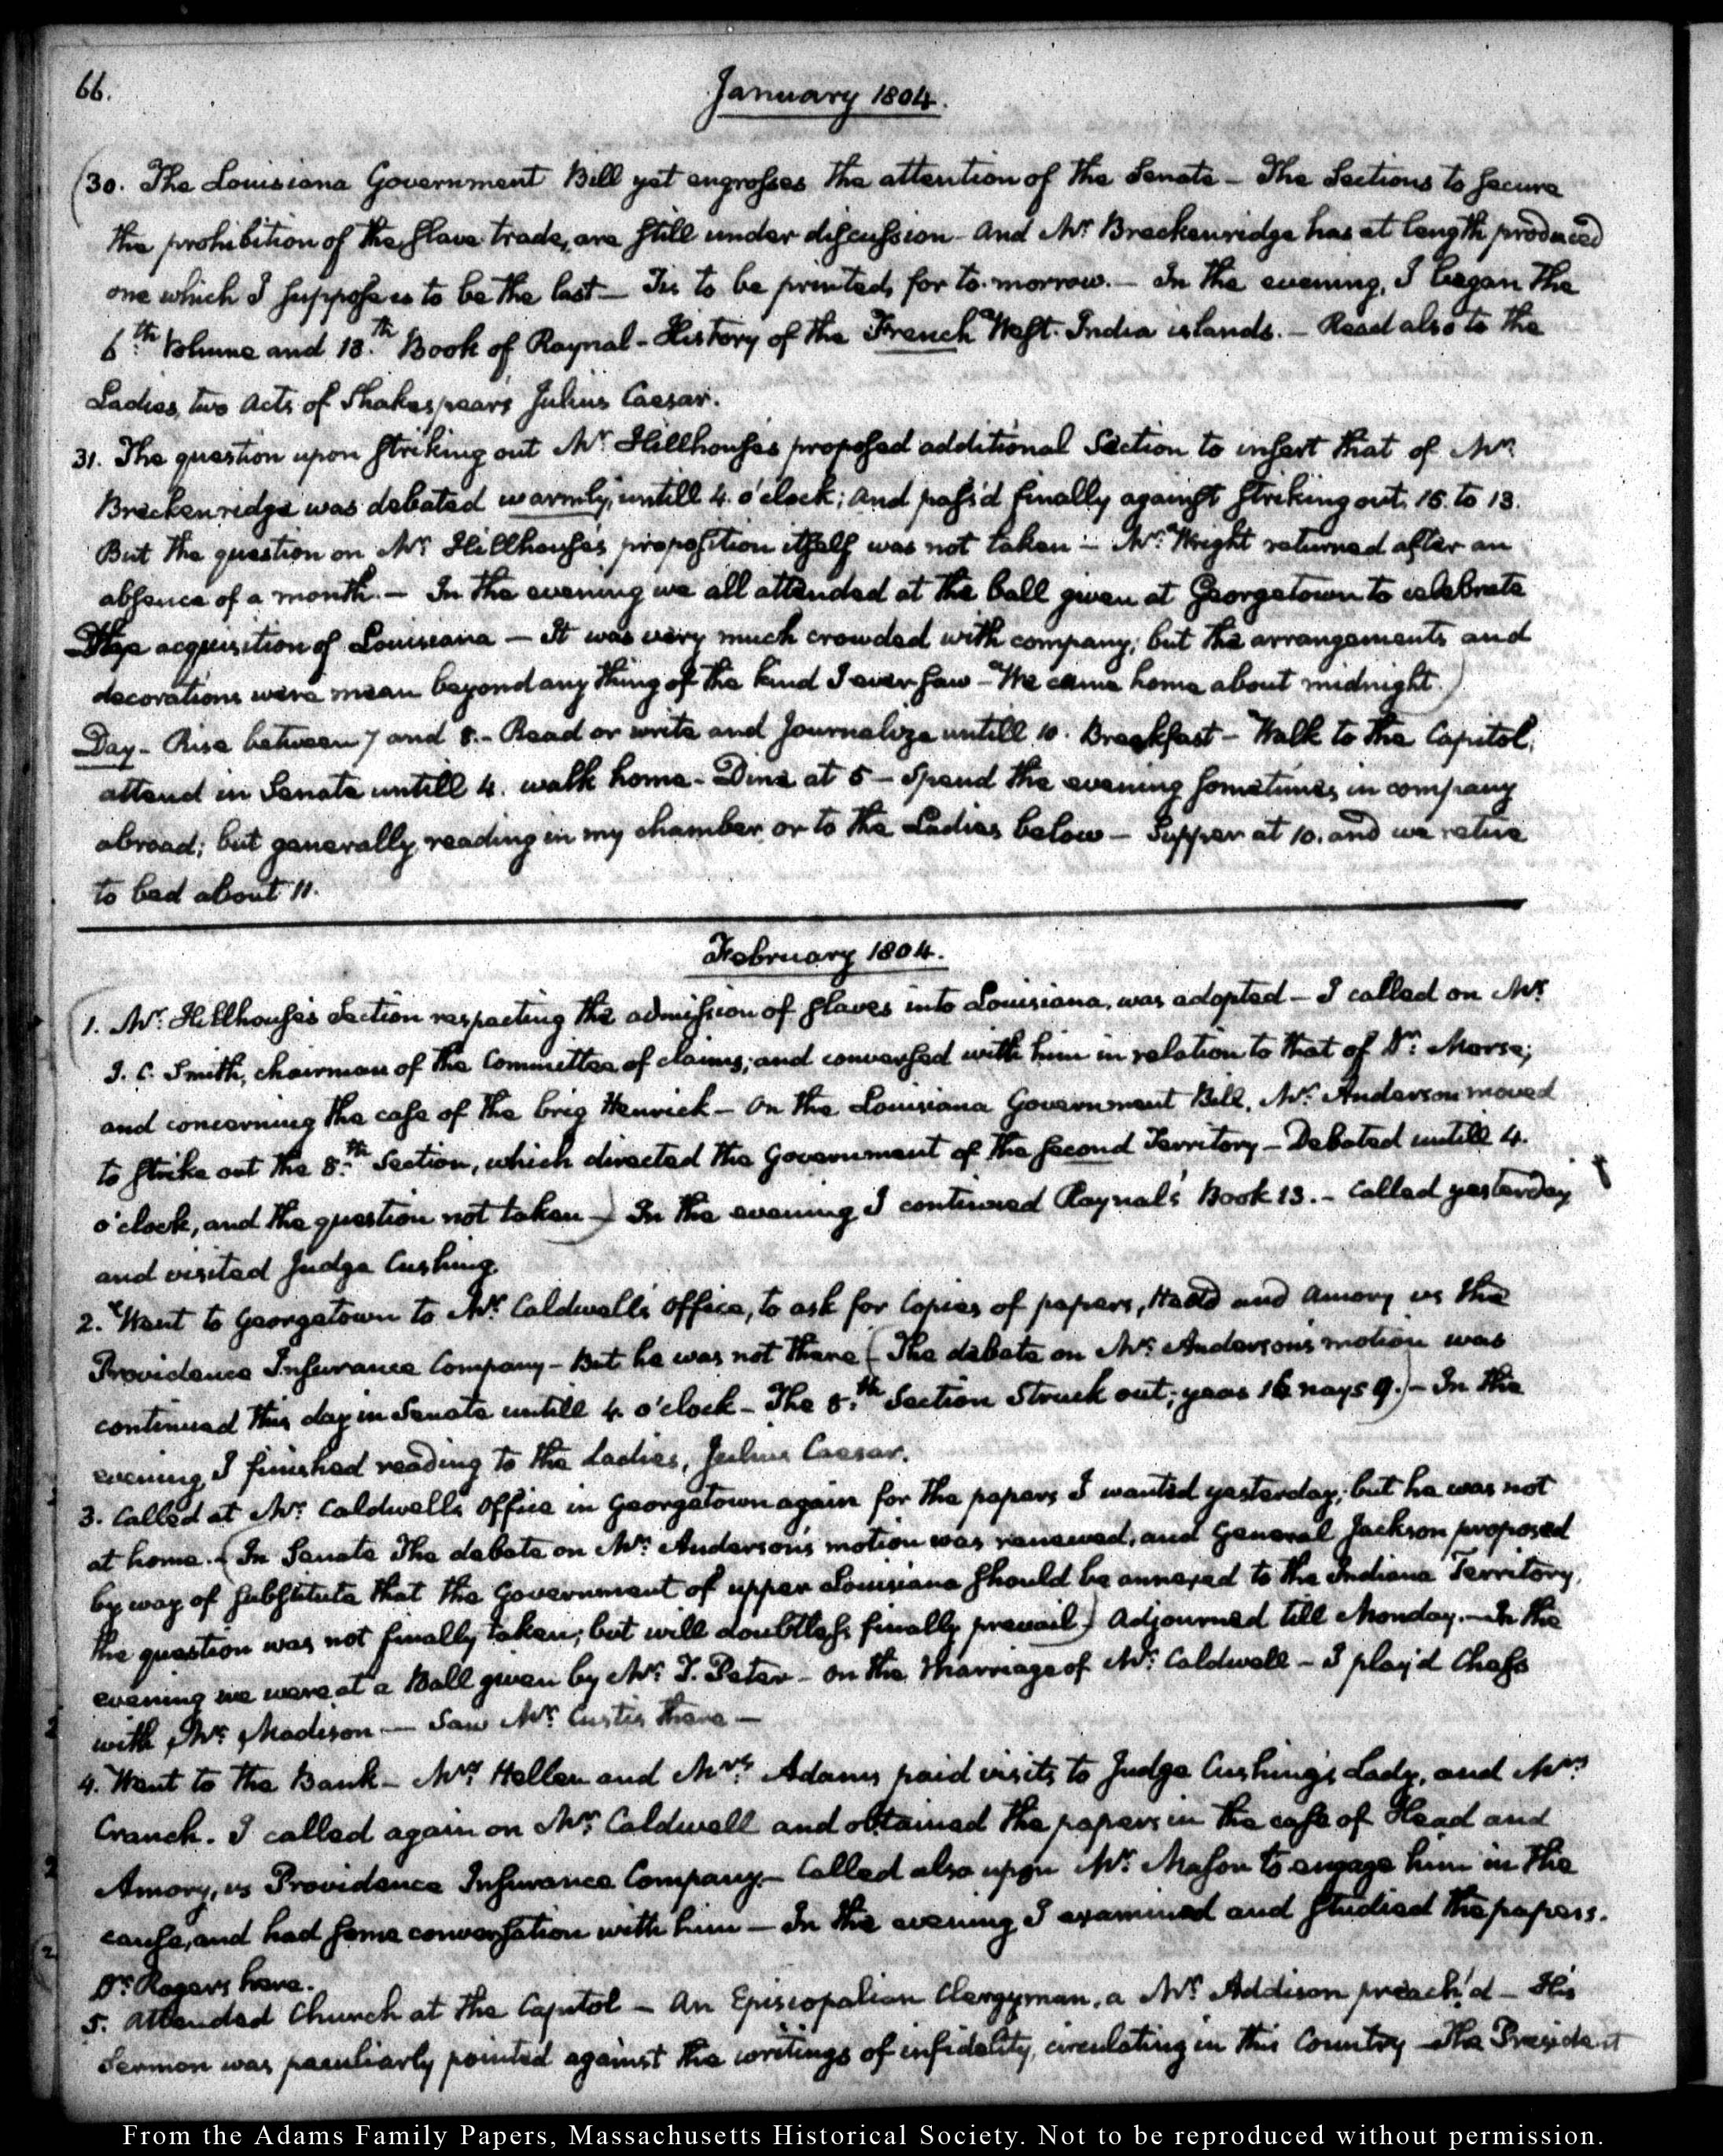 66.
January 1804.
30. The Louisiana Government Bill yet engrosses the attention of the Senate – The Sections to secure
the prohibition of the slave trade, are still under discussion – and Mr. Breckenridge has at length produced
one which I suppose is to be the last – Tis to be printed, for to-morrow. – In the evening, I began the
6th. Volume and 13.th Book of Raynal – History of the French West-India islands. – Read also to the
Ladies, two acts of Shakespear's Julius Caesar.
31. The question upon striking out Mr. Hillhouse's proposed additional Section to insert that of Mr.
Breckenridge was debated warmly, untill 4. o'clock; and pass'd finally against striking out. 15. to 13.
But the question on Mr. Hillhouse's proposition itself was not taken – Mr. Wright returned after an
absence of a month. – In the evening we all attended at the ball given at Georgetown to celebrate
the acquisition of Louisiana – It was very much crowded with company; but the arrangements and
decorations were mean beyond any thing of the kind I ever saw – We came home about midnight.)
Day – Rise between 7 and 8. – Read or write and Journalize untill 10. Breakfast – Walk to the Capitol.
attend in Senate untill 4. walk home – Dine at 5 – Spend the evening sometimes, in company
abroad; but generally reading in my chamber, or to the Ladies below – Supper at 10. and we retire
to bed about 11.
February 1804.
1. Mr. Hillhouse's Section respecting the admission of slaves into Louisiana, was adopted – I called on Mr.
J. C. Smith, chairman of the Committee of claims; and conversed with him in relation to that of Dr. Morse;
and concerning the case of the brig Henrick – On the Louisiana Government Bill, Mr. Anderson moved
to strike out the 8.th Section, which directed the Government of the second Territory – Debated untill 4.
o'clock, and the question not taken –) In the evening I continued Raynal's Book 13. – Called yesterday
and visited Judge Cushing.
2. Went to Georgetown to Mr. Caldwell's office, to ask for Copies of papers, Head and Amory vs the
Providence Insurance Company – But he was not there (The debate on Mr. Anderson's motion was
continued this day in Senate untill 4. o'clock – The 8.th Section Struck out; yeas 16 nays 9.) – In the
evening I finished reading to the Ladies, Julius Caesar.
3. Called at Mr. Caldwell's office in Georgetown again for the papers I wanted yesterday; but he was not
at home. – (In Senate The debate on Mr. Anderson's motion was renewed, and General Jackson proposed
by way of substitute that the Government of upper Louisiana should be annexed to the Indiana Territory,
the question was not finally taken; but will doubtless finally prevail.) Adjourned till Monday. – In the
evening we were at a Ball given by Mr. T. Peter – On the marriage of Mr. Caldwell – I play'd Chess
with Mr. Madison – Saw Mr. Custis there –
4. Went to the Bank – Mrs. Hellen and Mrs. Adams paid visits to Judge Cushing's Lady, and Mrs.
Cranch. I called again on Mr. Caldwell and obtained the papers in the case of Head and
Amory, vs Providence Insurance Company – Called also upon Mr. Mason to engage him in the
cause, and had some conversation with him – In the evening I examined and studied the papers.
Dr. Rogers here.
5. Attended Church at the Capitol – An Episcopalian Clergyman, a Mr. Addison preach'd – His
Sermon was peculiarly pointed against the writings of infidelity, circulating in this Country – The President
From the Adams Family Papers, Massachusetts Historical Society. Not to be reproduced without permission.